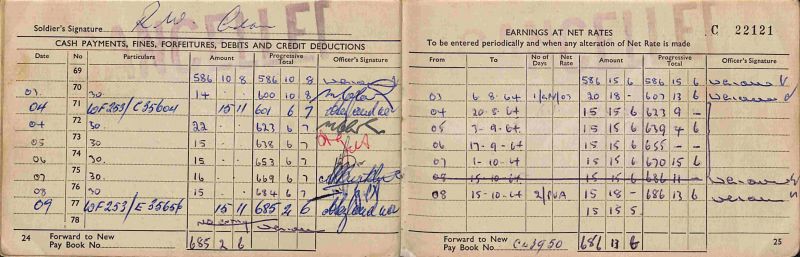 CANCELLED
CANCELLED
Soldier's Signature R.W.
CASH PAYMENTS, FINES, FORFEITURES, DEBITS AND CREDIT DEDUCTIONS
Date No Particulars Amount Progressive Total Officer's Signature
69 586 10 8 586 10 8
03 70 30. 14 · · 600 10 8
04 71 WF253/C35604 15 11 601 6 7
04 72 30. 22 · · 623 6 7
05 73 30. 15 · · 638 6 7
06 74 30. 15 · · 653 6 7
07 75 30. 16 · · 669 6 7
08 76 30. 15 · · 684 6 7
09 77 WF253/E35656 15 11 685 2 6
78
24 Forward to New Pay Book No. 685 2 6
EARNINGS AT NET RATES C 22121
To be entered periodically and when any alteration of Net Rate is made
From To No of Days Net Rate Amount Progressive Total Officer's Signature
586 15 6 586 15 6
03 6-8-64 20 18 - 607 13 6
04 20-8-64 15 15 6 623 9 -
05 3-9-64 15 15 6 639 4 6
06 17-9-64 15 15 6 655 - -
07 1-10-64 15 15 6 670 15 6
08 15-10-64 15 15 6 686 11 -
08 15-10-64 2/PVA 15 18 - 686 13 6
15 15 5
Forward to New Pay Book No. 686 13 6 25